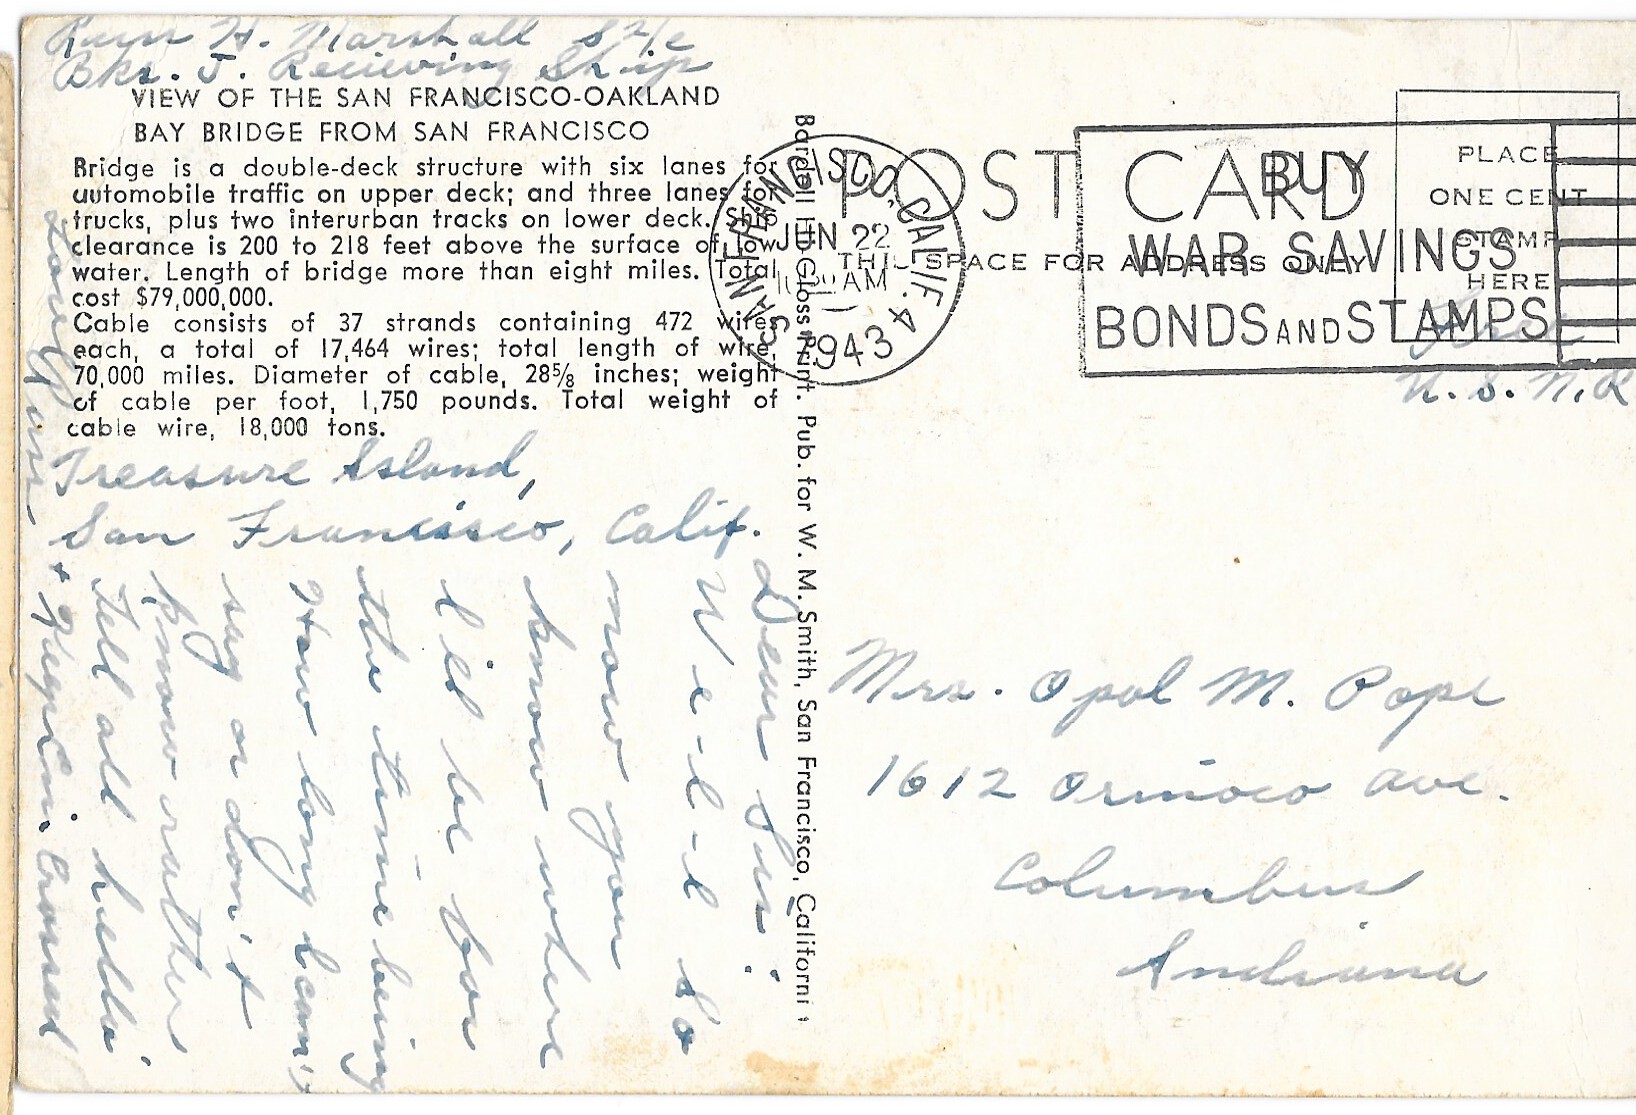 Russ H. Marshall S2/c
Bks. J. Recieving Ship
VIEW OF THE SAN FRANCISCO-OAKLAND
BAY BRIDGE FROM SAN FRANCISCO
Bridge is a double-deck structure with six lanes for
automobile traffic on upper deck; and three lanes for
trucks, plus two interurban tracks on lower deck. Ship
clearance is 200 to 218 feet above the surface of low
water. Length of bridge more than eight miles. Total
cost $79,000,000.
Cable consists of 37 strands containing 472 wires
each, a total of 17,464 wires; total length of wire,
70,000 miles. Diameter of cable, 28⅝ inches; weight
of cable per foot, 1,750 pounds. Total weight of
cable wire, 18,000 tons.
Treasure Island,
San Francisco, Calif.
Dear Sis:
W-e-l-l So
now you
know where
I'll be for
the time being
How long I can't
say or don't
know rather
Tell all hello.
+ Keep Em. Crossed
Love Russ
Bardell Ith Gloss Print. Pub. for W. M. Smith, San Francisco, California
POST CARD
THIS SPACE FOR ADDRESS ONLY
PLACE
ONE CENT
STAMP
HERE
SAN FRANCISCO, CALIF. 4
JUN 22
AM
1943
BUY
WAR SAVINGS
BONDS AND STAMPS
Free
U.S.N.R
Mrs. Opal M. Pope
1612 Orinoco Ave.
Columbus
Indiana